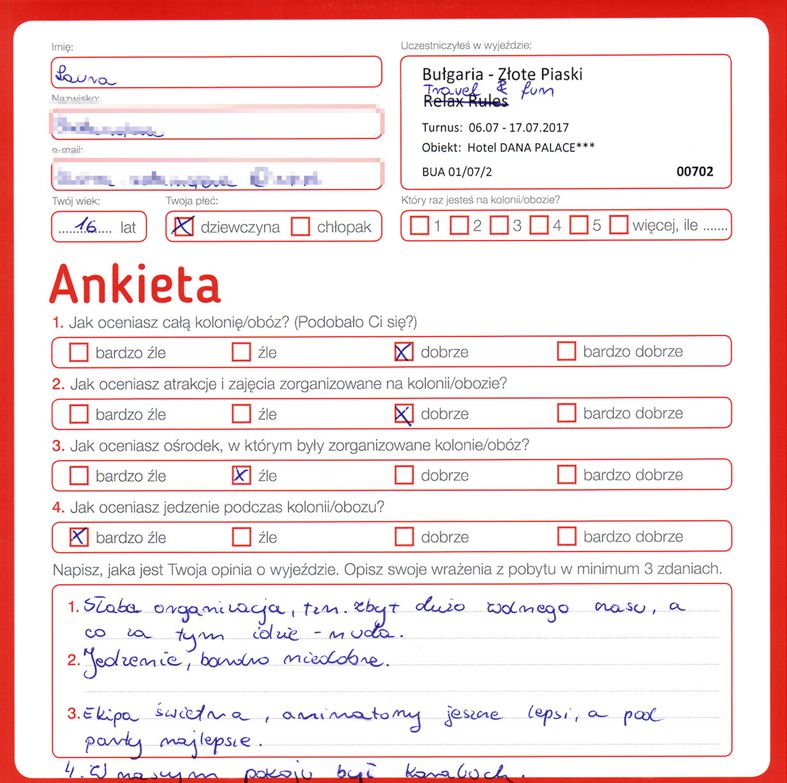 Imię:
Uczestniczyłeś w wyjeździe:
Laura
Bułgaria - Złote Piaski
Travel & fun
Relax Rules
Nazwisko:
Turnus: 06.07 - 17.07.2017
Obiekt: Hotel DANA PALACE***
e-mail:
BUA 01/07/2 00702
Twój wiek: Twoja płeć: Który raz jesteś na kolonii/obozie?
16 lat dziewczyna chłopak 1 2 3 4 5 więcej, ile .......
Ankieta
1. Jak oceniasz całą kolonię/obóz? (Podobało Ci się?)
bardzo źle źle dobrze bardzo dobrze
2. Jak oceniasz atrakcje i zajęcia zorganizowane na kolonii/obozie?
bardzo źle źle dobrze bardzo dobrze
3. Jak oceniasz ośrodek, w którym były zorganizowane kolonie/obóz?
bardzo źle źle dobrze bardzo dobrze
4. Jak oceniasz jedzenie podczas kolonii/obozu?
bardzo źle źle dobrze bardzo dobrze
Napisz, jaka jest Twoja opinia o wyjeździe. Opisz swoje wrażenia z pobytu w minimum 3 zdaniach.
1. Słaba organizacja, tzn. zbyt dużo wolnego czasu, a
co za tym idzie - nuda.
2. Jedzenie, bardzo niedobre.
3. Ekipa świetna, animatorzy jeszcze lepsi, a pod
panty najlepsie.
4. W naszym pokoju był karaluch.